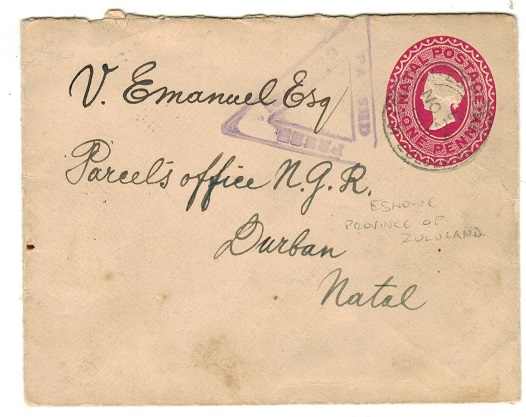 V. Emanuel Esq
PASSED
PRESS
NATAL POSTAGE
ONE PENNY
Parcel's office N.G.R.
ESHOWE
PROVINCE OF
ZULULAND
Durban
Natal